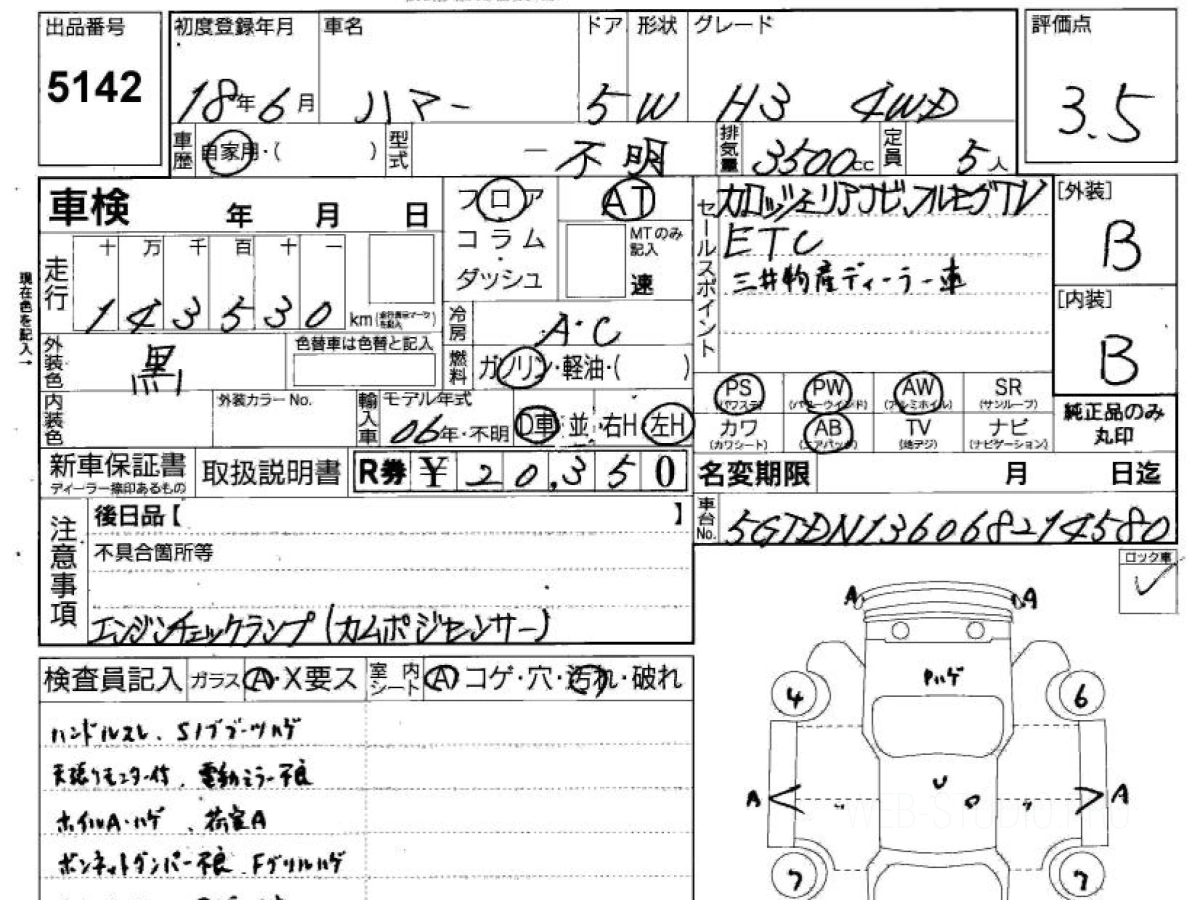 出品番号 初度登録年月 車名 ドア 形状 グレード 評価点
5142 18年6月 ハマー 5 W H3 4WD 3.5
車歴 自家用・( ) 型式 -不明 排気量 3500cc 定員 5人
車検 年 月 日 フロア AT セールスポイント カロッツェリアナビ、フルセグTV [外装]
コラム MTのみ記入 ETC B
ダッシュ 速 三井物産ディーラー車
現在色を記入→ 走行 十 万 千 百 十 一
143530 km (走行表示マークを記入) 冷房 A・C [内装]
外装色 黒 色替車は色替と記入 燃料 ガソリン・軽油・( ) B
PS (パワステ) PW (パワーウインド) AW (アルミホイル) SR (サンルーフ)
内装色 外装カラーNo. 輸入車 モデル年式 06年・不明 D車・並 右H・左H カワ (カワシート) AB (エアバッグ) TV (地デジ) ナビ (ナビゲーション) 純正品のみ丸印
新車保証書 ディーラー捺印あるもの 取扱説明書 R券 ¥20,350 名変期限 月 日迄
注意事項 後日品【 】 車台No. 5GTDN136068214580
不具合箇所等 ロック車 ✓
エンジンチェックランプ(カムポジセンサー)
検査員記入 ガラスA・X要ス 室内シート A コゲ・穴・汚れ・破れ
ハンドルスレ、Sノブブーツハゲ
天張りモニター付、電動ミラー不良
ホイルA・ハゲ、荷室A
ボンネットダンパー不良、Fグリルハゲ
A A
ハゲ
4 6
U
A A
7 7
WEB-STUDIO.PRO